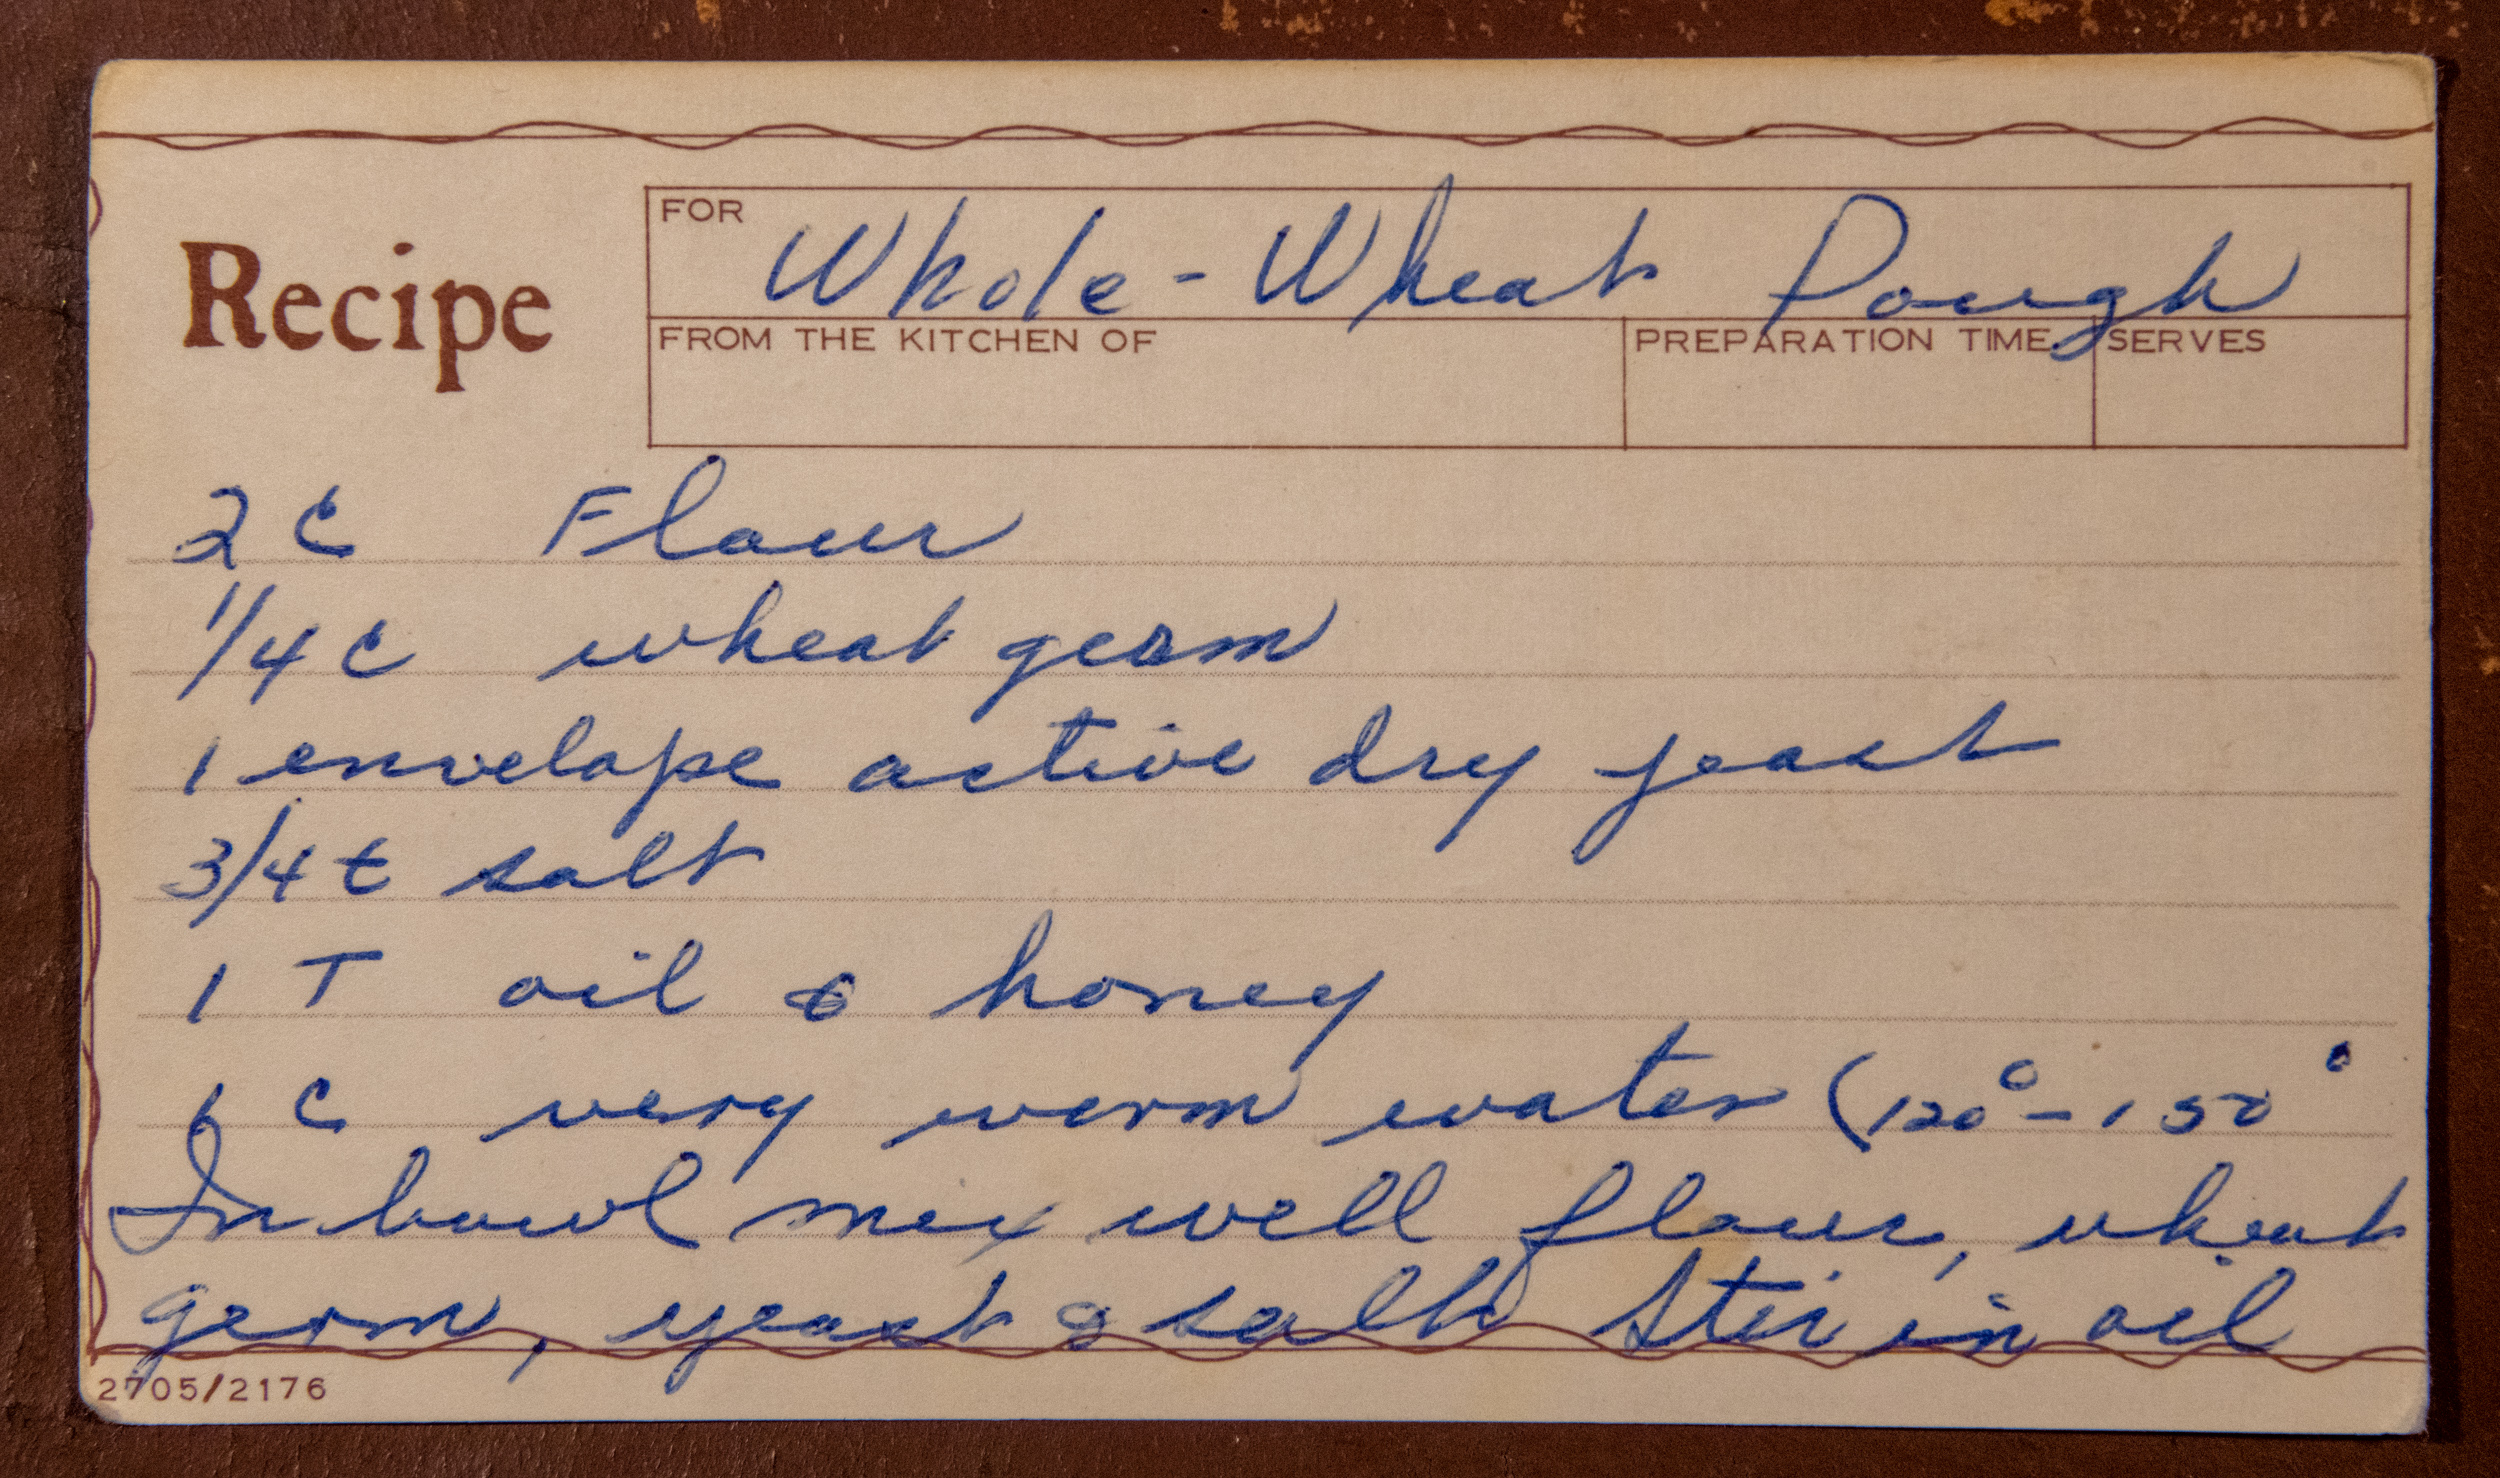 FOR Whole-Wheat Dough
Recipe
FROM THE KITCHEN OF PREPARATION TIME SERVES
2 C Flour
1/4 C wheat germ
1 envelope active dry yeast
3/4 t salt
1 T oil & honey
1 C very warm water (120° - 150°
In bowl mix well flour, wheat
germ, yeast & salt Stir in oil
2705/2176